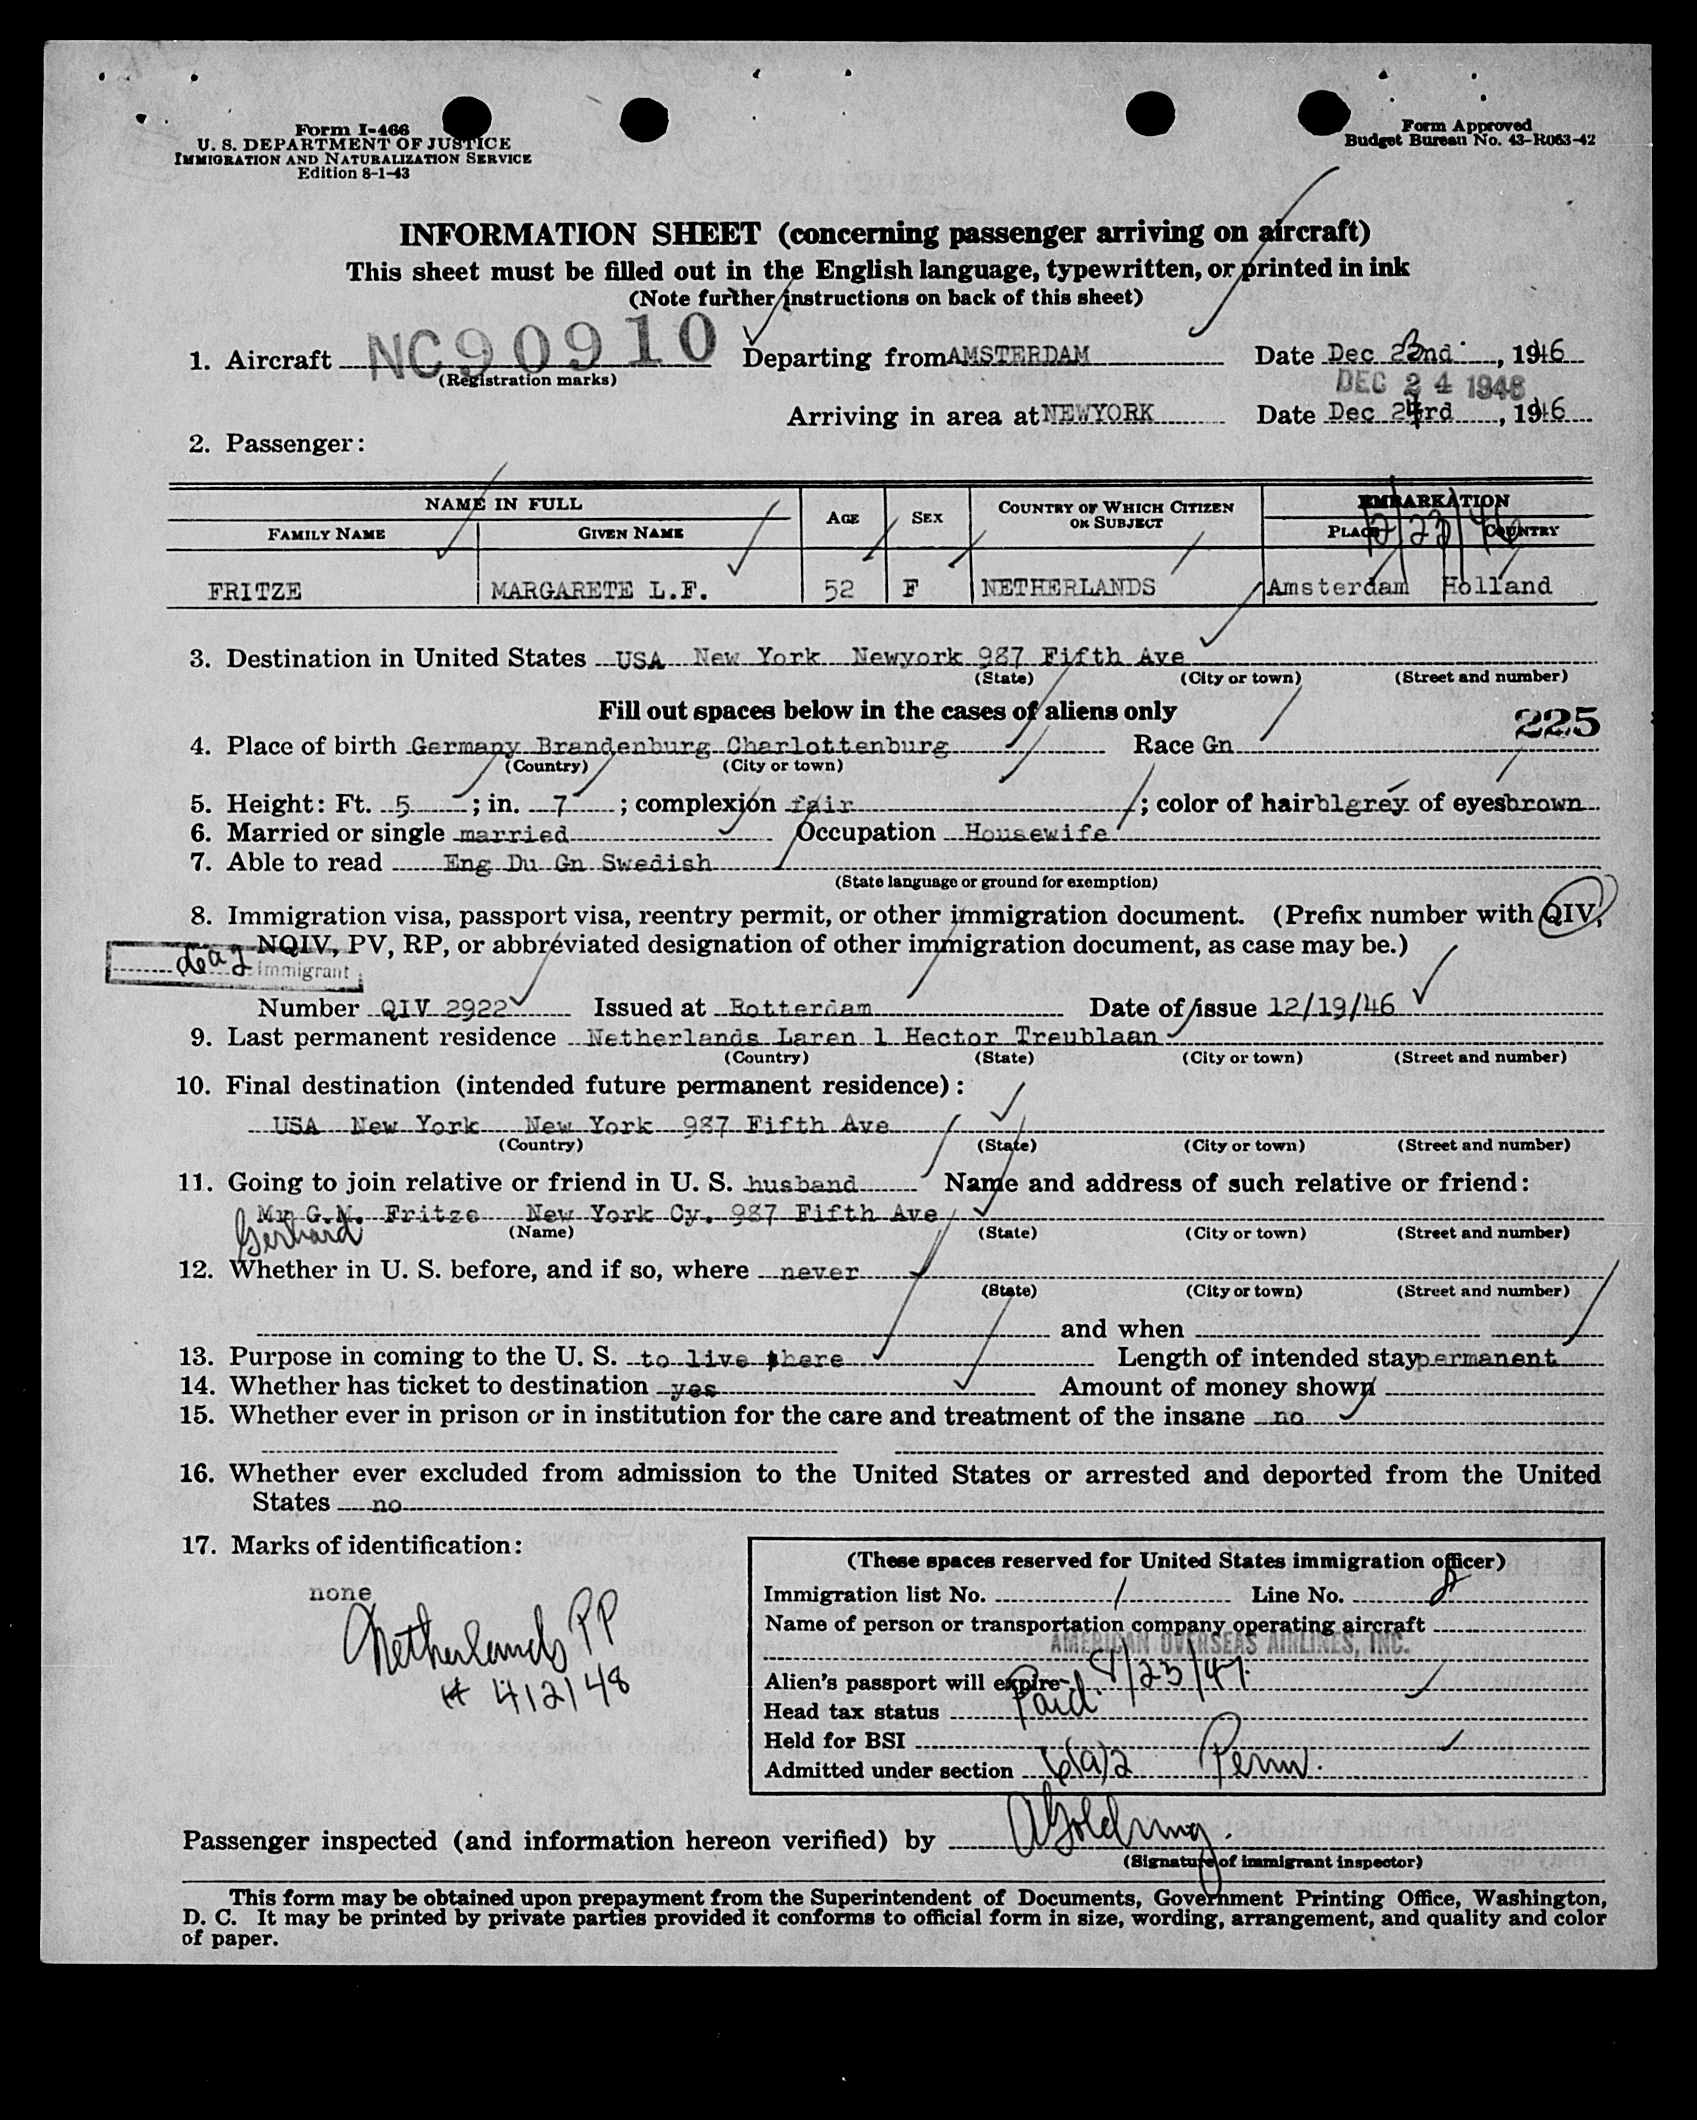 Form I-466
U. S. DEPARTMENT OF JUSTICE
IMMIGRATION AND NATURALIZATION SERVICE
Edition 8-1-43
Form Approved
Budget Bureau No. 43-R063-42
INFORMATION SHEET (concerning passenger arriving on aircraft)
This sheet must be filled out in the English language, typewritten, or printed in ink
(Note further instructions on back of this sheet)
1. Aircraft NC90910 Departing from AMSTERDAM Date Dec 23nd, 1946
(Registration marks)
DEC 24 1946
Arriving in area at NEWYORK Date Dec 24rd, 1946
2. Passenger:
NAME IN FULL AGE SEX COUNTRY OF WHICH CITIZEN OR SUBJECT EMBARKATION
FAMILY NAME GIVEN NAME PLACE COUNTRY
12/23/46
FRITZE MARGARETE L.F. 52 F NETHERLANDS Amsterdam Holland
3. Destination in United States USA New York Newyork 987 Fifth Ave
(State) (City or town) (Street and number)
Fill out spaces below in the cases of aliens only
225
4. Place of birth Germany Brandenburg Charlottenburg Race Gn
(Country) (City or town)
5. Height: Ft. 5 ; in. 7 ; complexion fair ; color of hair blgrey of eyes brown
6. Married or single married Occupation Housewife
7. Able to read Eng Du Gn Swedish
(State language or ground for exemption)
8. Immigration visa, passport visa, reentry permit, or other immigration document. (Prefix number with QIV,
NQIV, PV, RP, or abbreviated designation of other immigration document, as case may be.)
Immigrant
Number QIV 2922 Issued at Rotterdam Date of issue 12/19/46
9. Last permanent residence Netherlands Laren 1 Hector Treublaan
(Country) (State) (City or town) (Street and number)
10. Final destination (intended future permanent residence):
USA New York New York 987 Fifth Ave
(Country) (State) (City or town) (Street and number)
11. Going to join relative or friend in U. S. husband Name and address of such relative or friend:
Mr G.M. Fritze New York Cy. 987 Fifth Ave
Gerhard (Name) (State) (City or town) (Street and number)
12. Whether in U. S. before, and if so, where never
(State) (City or town) (Street and number)
and when
13. Purpose in coming to the U. S. to live there Length of intended stay permanent
14. Whether has ticket to destination yes Amount of money shown
15. Whether ever in prison or in institution for the care and treatment of the insane no
16. Whether ever excluded from admission to the United States or arrested and deported from the United
States no
17. Marks of identification:
none
Netherlands PP
# 412148
(These spaces reserved for United States immigration officer)
Immigration list No. 1 Line No. 2
Name of person or transportation company operating aircraft
AMERICAN OVERSEAS AIRLINES, INC.
Alien's passport will expire 8/23/47
Head tax status Paid
Held for BSI
Admitted under section 6(a)2 Perm.
Passenger inspected (and information hereon verified) by AGoldring
(Signature of immigrant inspector)
This form may be obtained upon prepayment from the Superintendent of Documents, Government Printing Office, Washington,
D. C. It may be printed by private parties provided it conforms to official form in size, wording, arrangement, and quality and color
of paper.